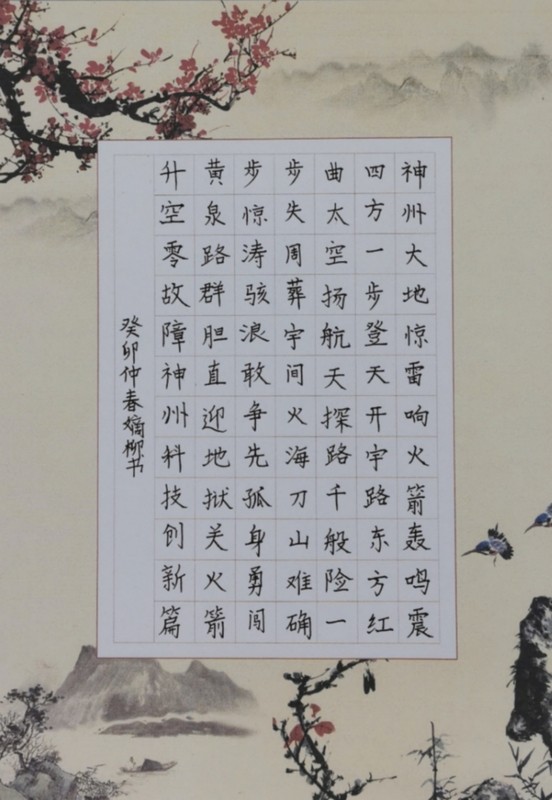 神州大地惊雷响火箭轰鸣震
四方一步登天开宇路东方红
曲太空扬航天探路千般险一
步失周葬宇间火海刀山难确
步惊涛骇浪敢争先孤身勇闯
黄泉路群胆直迎地狱关火箭
升空零故障神州科技创新篇
癸卯仲春嫡柳书